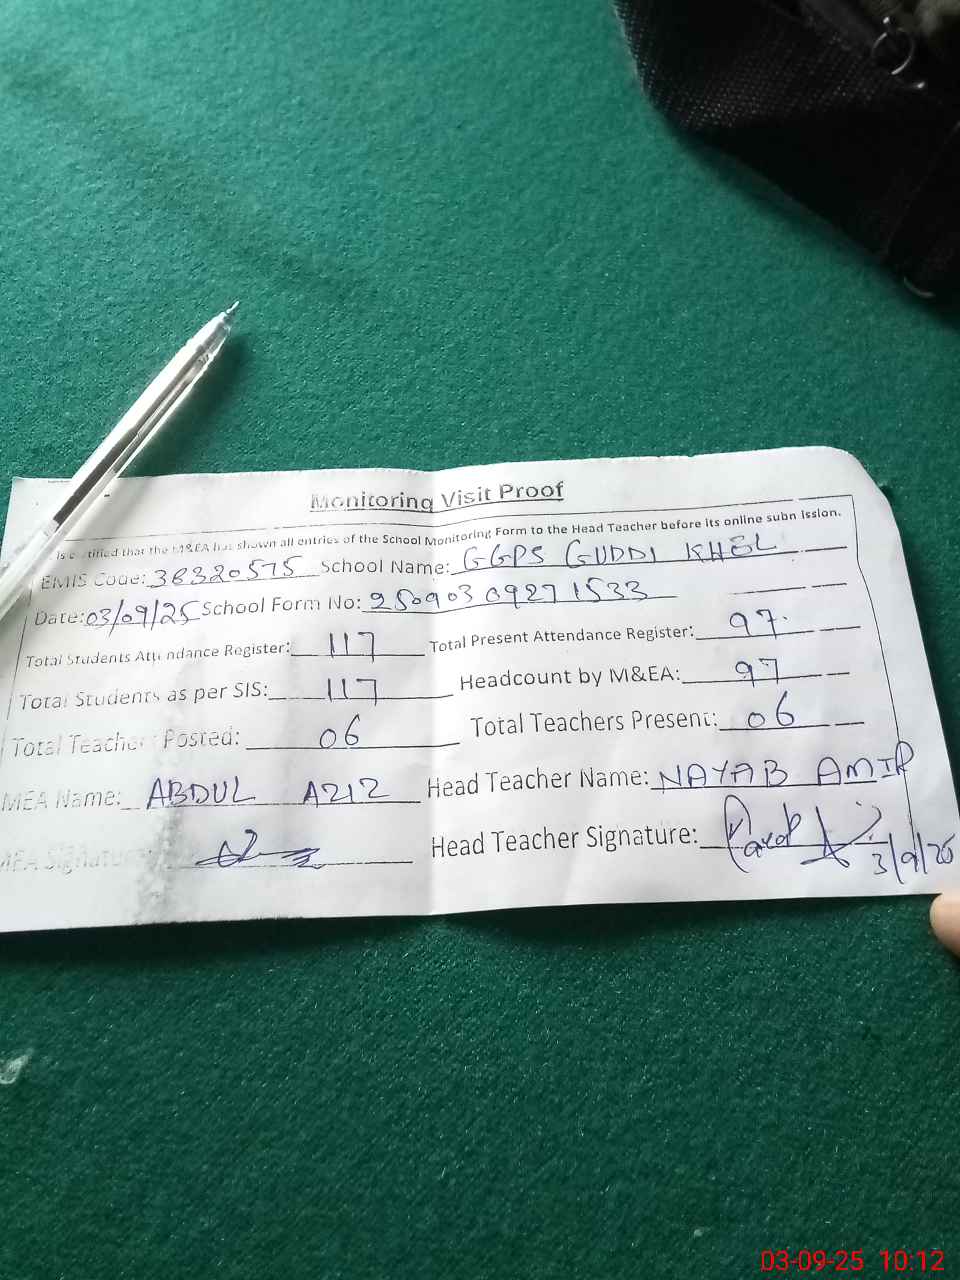 Monitoring Visit Proof
is certified that the M&EA has shown all entries of the School Monitoring Form to the Head Teacher before its online submission.
EMIS Code: 38320575 School Name: GGPS GUDDI KHEL
Date: 03/09/25 School Form No: 250903 09271533
Total Students Attendance Register: 117 Total Present Attendance Register: 97
Total Students as per SIS: 117 Headcount by M&EA: 97
Total Teacher Posted: 06 Total Teachers Present: 06
MEA Name: ABDUL AZIZ Head Teacher Name: NAYAB AMIR
MEA Signature Head Teacher Signature:
3/9/25
03-09-25 10:12